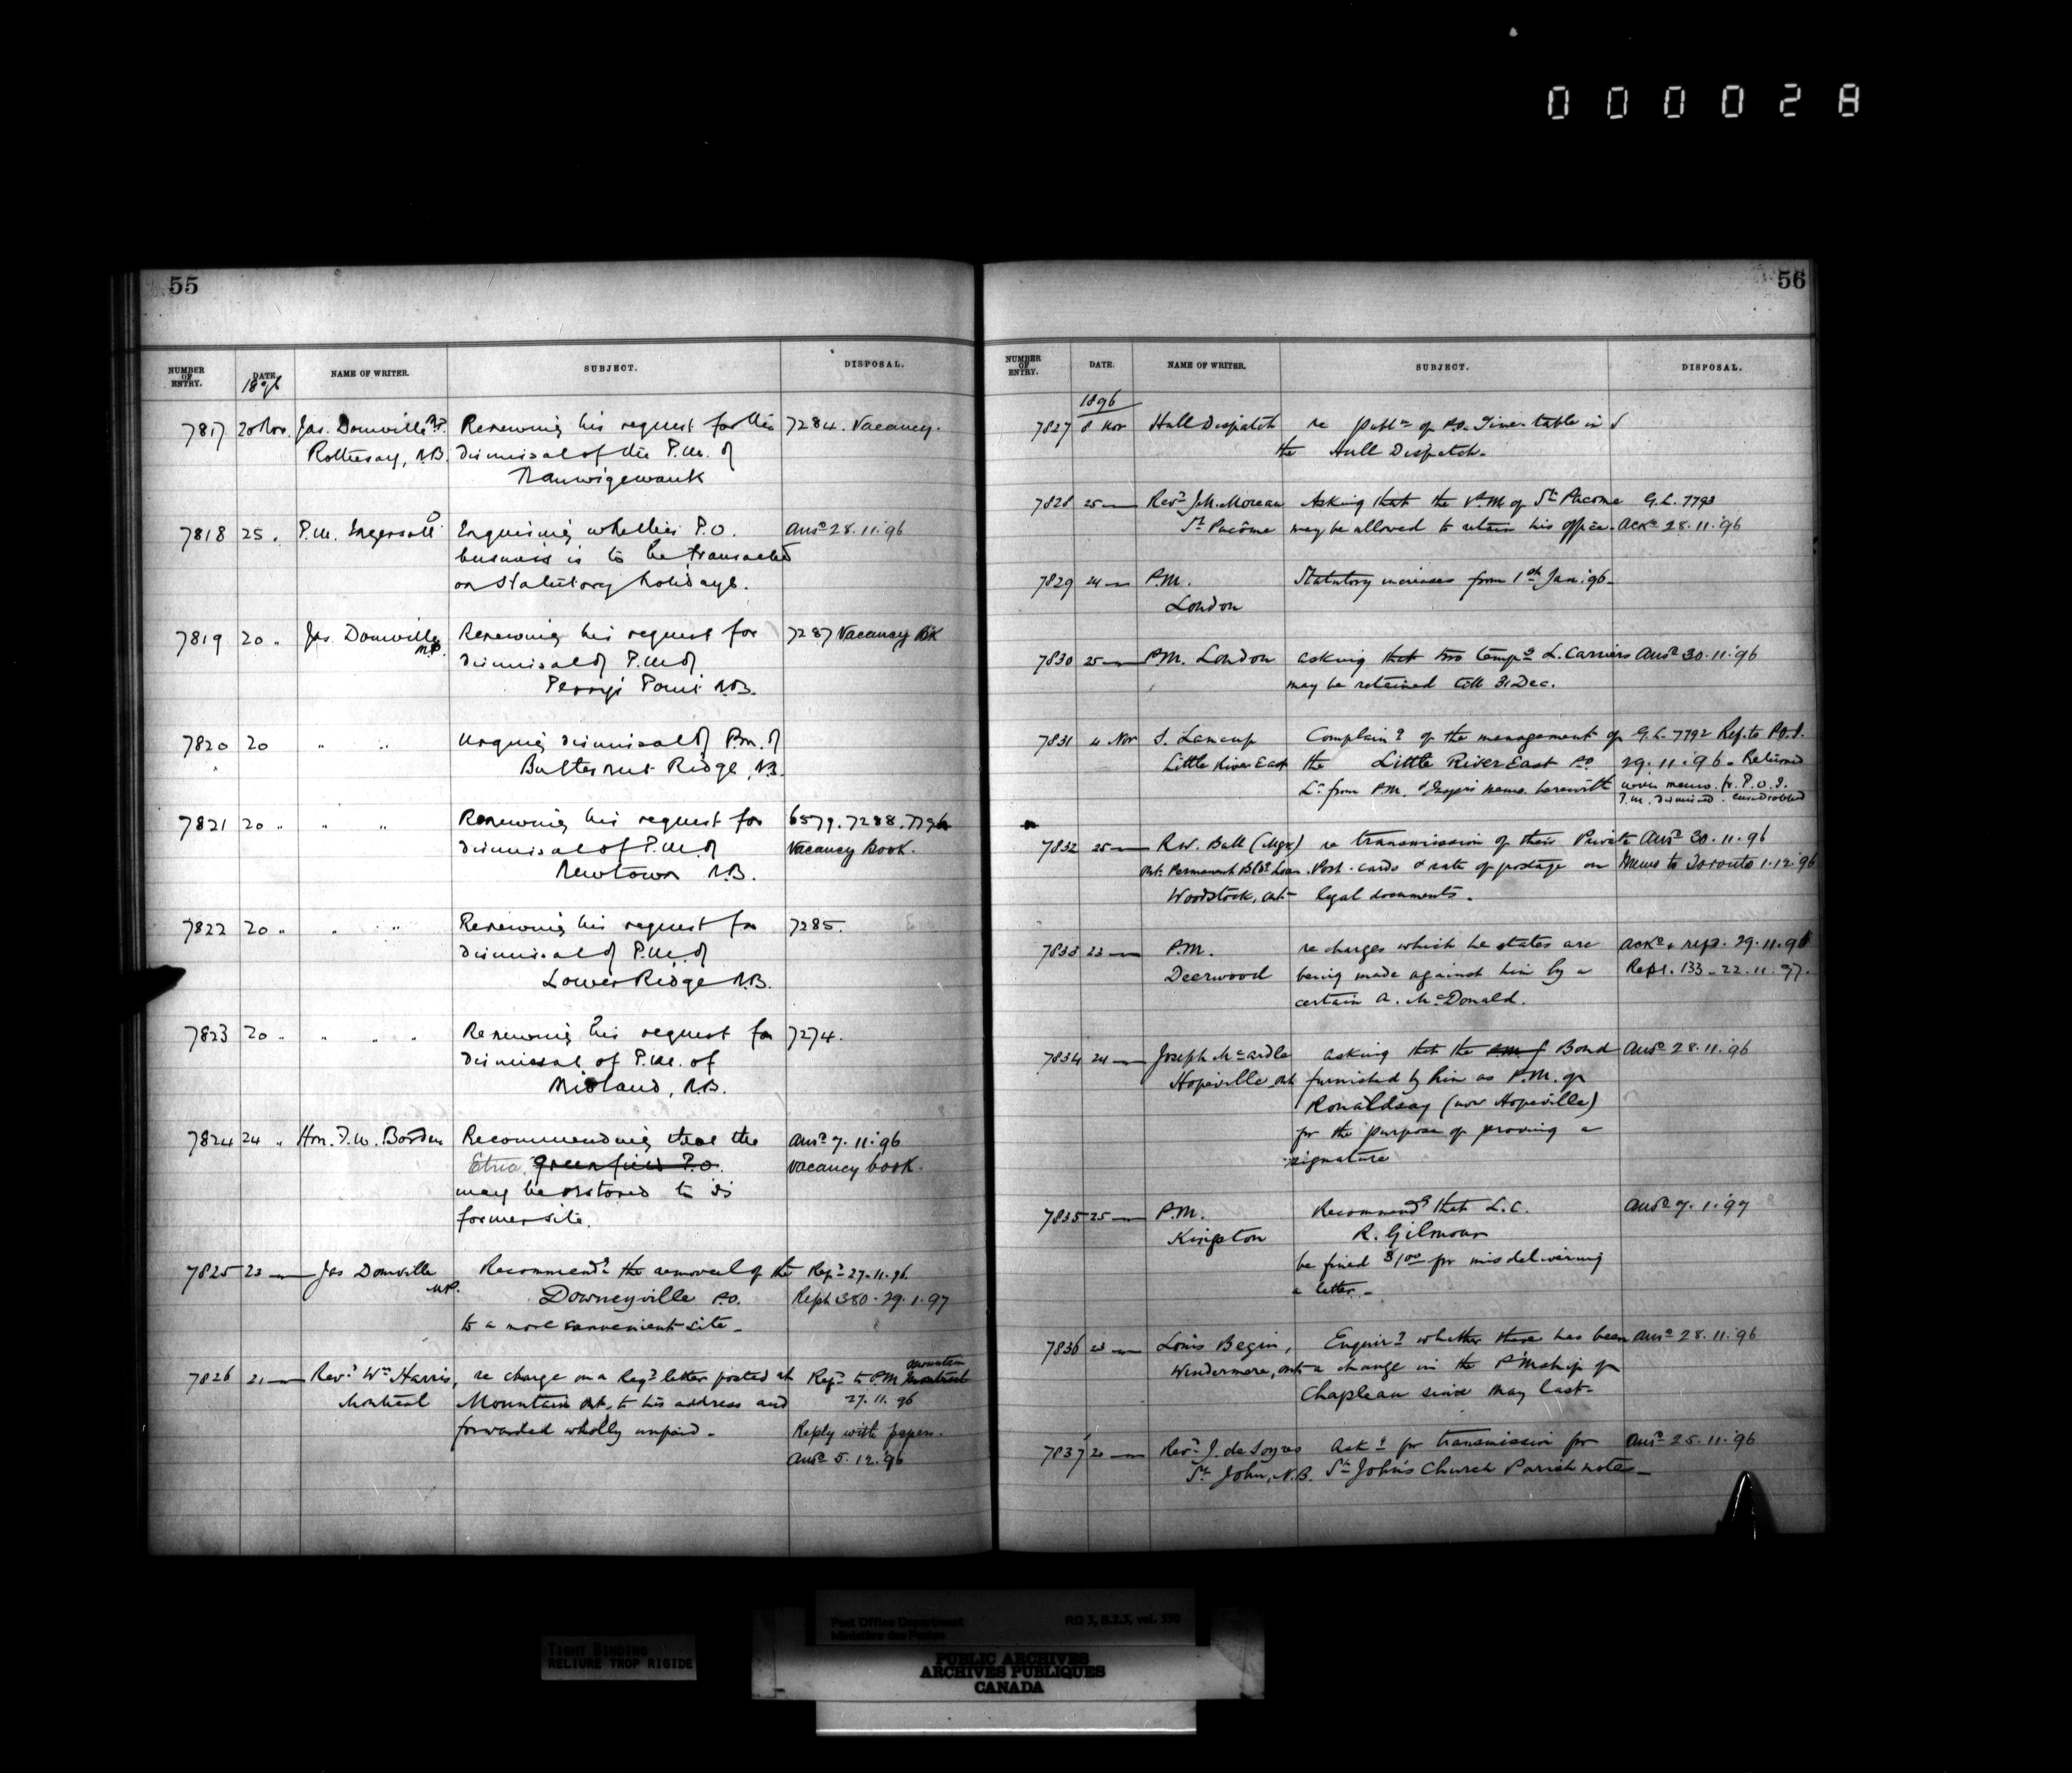 000028
55
NUMBER OF ENTRY. DATE. NAME OF WRITER. SUBJECT. DISPOSAL.
1896
7817 20 Nov. Jas. Domville M.P. Renewing his request for the 7284. Vacancy.
Rothesay, N.B. dismissal of the P.M. of
Nauwigewauk
7818 25 " P.M. Ingersoll O. Enquiring whether P.O. Ansd 28.11.'96
business is to be transacted
on statutory holidays.
7819 20 " Jas. Domville M.P. Renewing his request for 7287 Vacancy Bk
dismissal of P.M. of
Perry's Point N.B.
7820 20 " " Urging dismissal of P.M. of
Butternut Ridge, N.B.
7821 20 " " " Renewing his request for 6579. 7288. 7796
dismissal of P.M. of Vacancy Book.
Newtown N.B.
7822 20 " " " Renewing his request for 7285.
dismissal of P.M. of
Lower Ridge N.B.
7823 20 " " " " Renewing his request for 7274.
dismissal of P.M. of
Midland, N.B.
7824 24 " Hon. F.W. Borden Recommending that the Ansd 7.11.'96
Etna Greenfield P.O. Vacancy book.
may be restored to its
former site.
7825 23 — Jas Domville M.P. Recommendg the removal of the Repd 27.11.96.
Downeyville P.O. Reph 380 - 29.1.97
to a more convenient site -
7826 21 — Revd Wm Harris, re charge on a Regd letter posted at Refd to P.M. Montreal Mountain
Montreal Mountain Ont. to his address and 27.11.96
forwarded wholly unpaid - Reply with papers.
Ansd 5.12.'96
56
NUMBER OF ENTRY. DATE. NAME OF WRITER. SUBJECT. DISPOSAL.
1896
7827 8 Nov Hull Dispatch re Publn of P.O. Time-table in
the Hull Dispatch.
7828 25 — Revd J.M. Moreau Asking that the P.M. of St. Pacome G.L. 7793
St Pacôme may be allowed to retain his office. Ackd 28.11.'96
7829 24 — P.M. Statutory increases from 1st Jan. '96 -
London
7830 25 — P.M. London asking that two tempy L. Carriers Ansd 30.11.'96
may be retained till 31 Dec.
7831 4 Nov Complaing of the management of G.L. 7792 Ref. to P.O.I.
Little River East the Little River East P.O. 29.11.'96 - Returned
Lr from P.M. & Insp's memo. herewith with memo. fr. P.O.I.
P.M. dismissed.
7832 25 — R.W. Ball (Mgr) re transmission of their Private Ansd 30.11.96
Ont. Permanent Bldg Loan. Post-cards & rate of postage on Memo to Toronto 1.12.'96
Woodstock, Ont - legal documents.
7833 23 — P.M. re charges which he states are Ackd & refd. 29.11.96
Deerwood being made against him by a Repl. 133 - 22.11.97.
certain A. McDonald.
7834 24 — Joseph McArdle asking that the P.M. of Bond Ansd 28.11.'96
Hopeville Ont furnished by him as P.M. of
Ronaldsay (now Hopeville)
for the purpose of proving a
signature
7835 25 — P.M. Recommendg that L.C. Ansd 7.1.'97
Kingston R. Gilmour
be fined $1.00 for misdelivering
a letter. -
7836 23 — Louis Begin, Enquirg whether there has been Ansd 28.11.'96
Windermere, Ont a change in the P'Mship of
Chapleau since May last -
7837 20 — Revd J. de Soyres Askg for transmission for Ansd 25.11.'96
St. John, N.B. St John's Church Parish notes -
TIGHT BINDING
RELIURE TROP RIGIDE
Post Office Department
Ministère des Postes
RG 3, B.2.3, vol. 350
PUBLIC ARCHIVES
ARCHIVES PUBLIQUES
CANADA